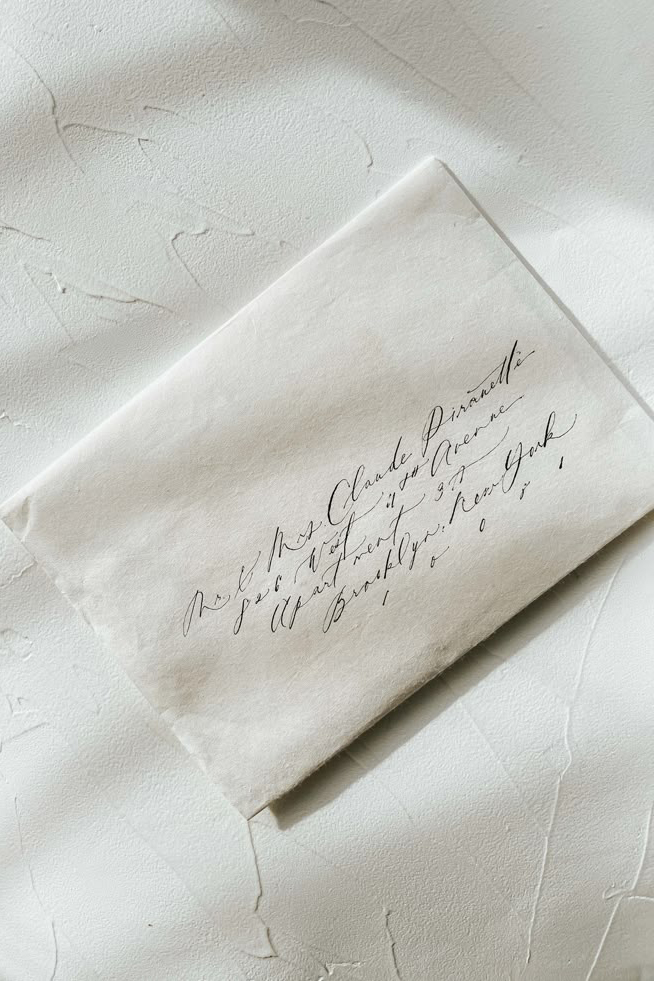 Mr. & Mrs. Claude Piranelli
826 West 4th Avenue
Apartment 3J
Brooklyn, New York
1 0 0 8 1